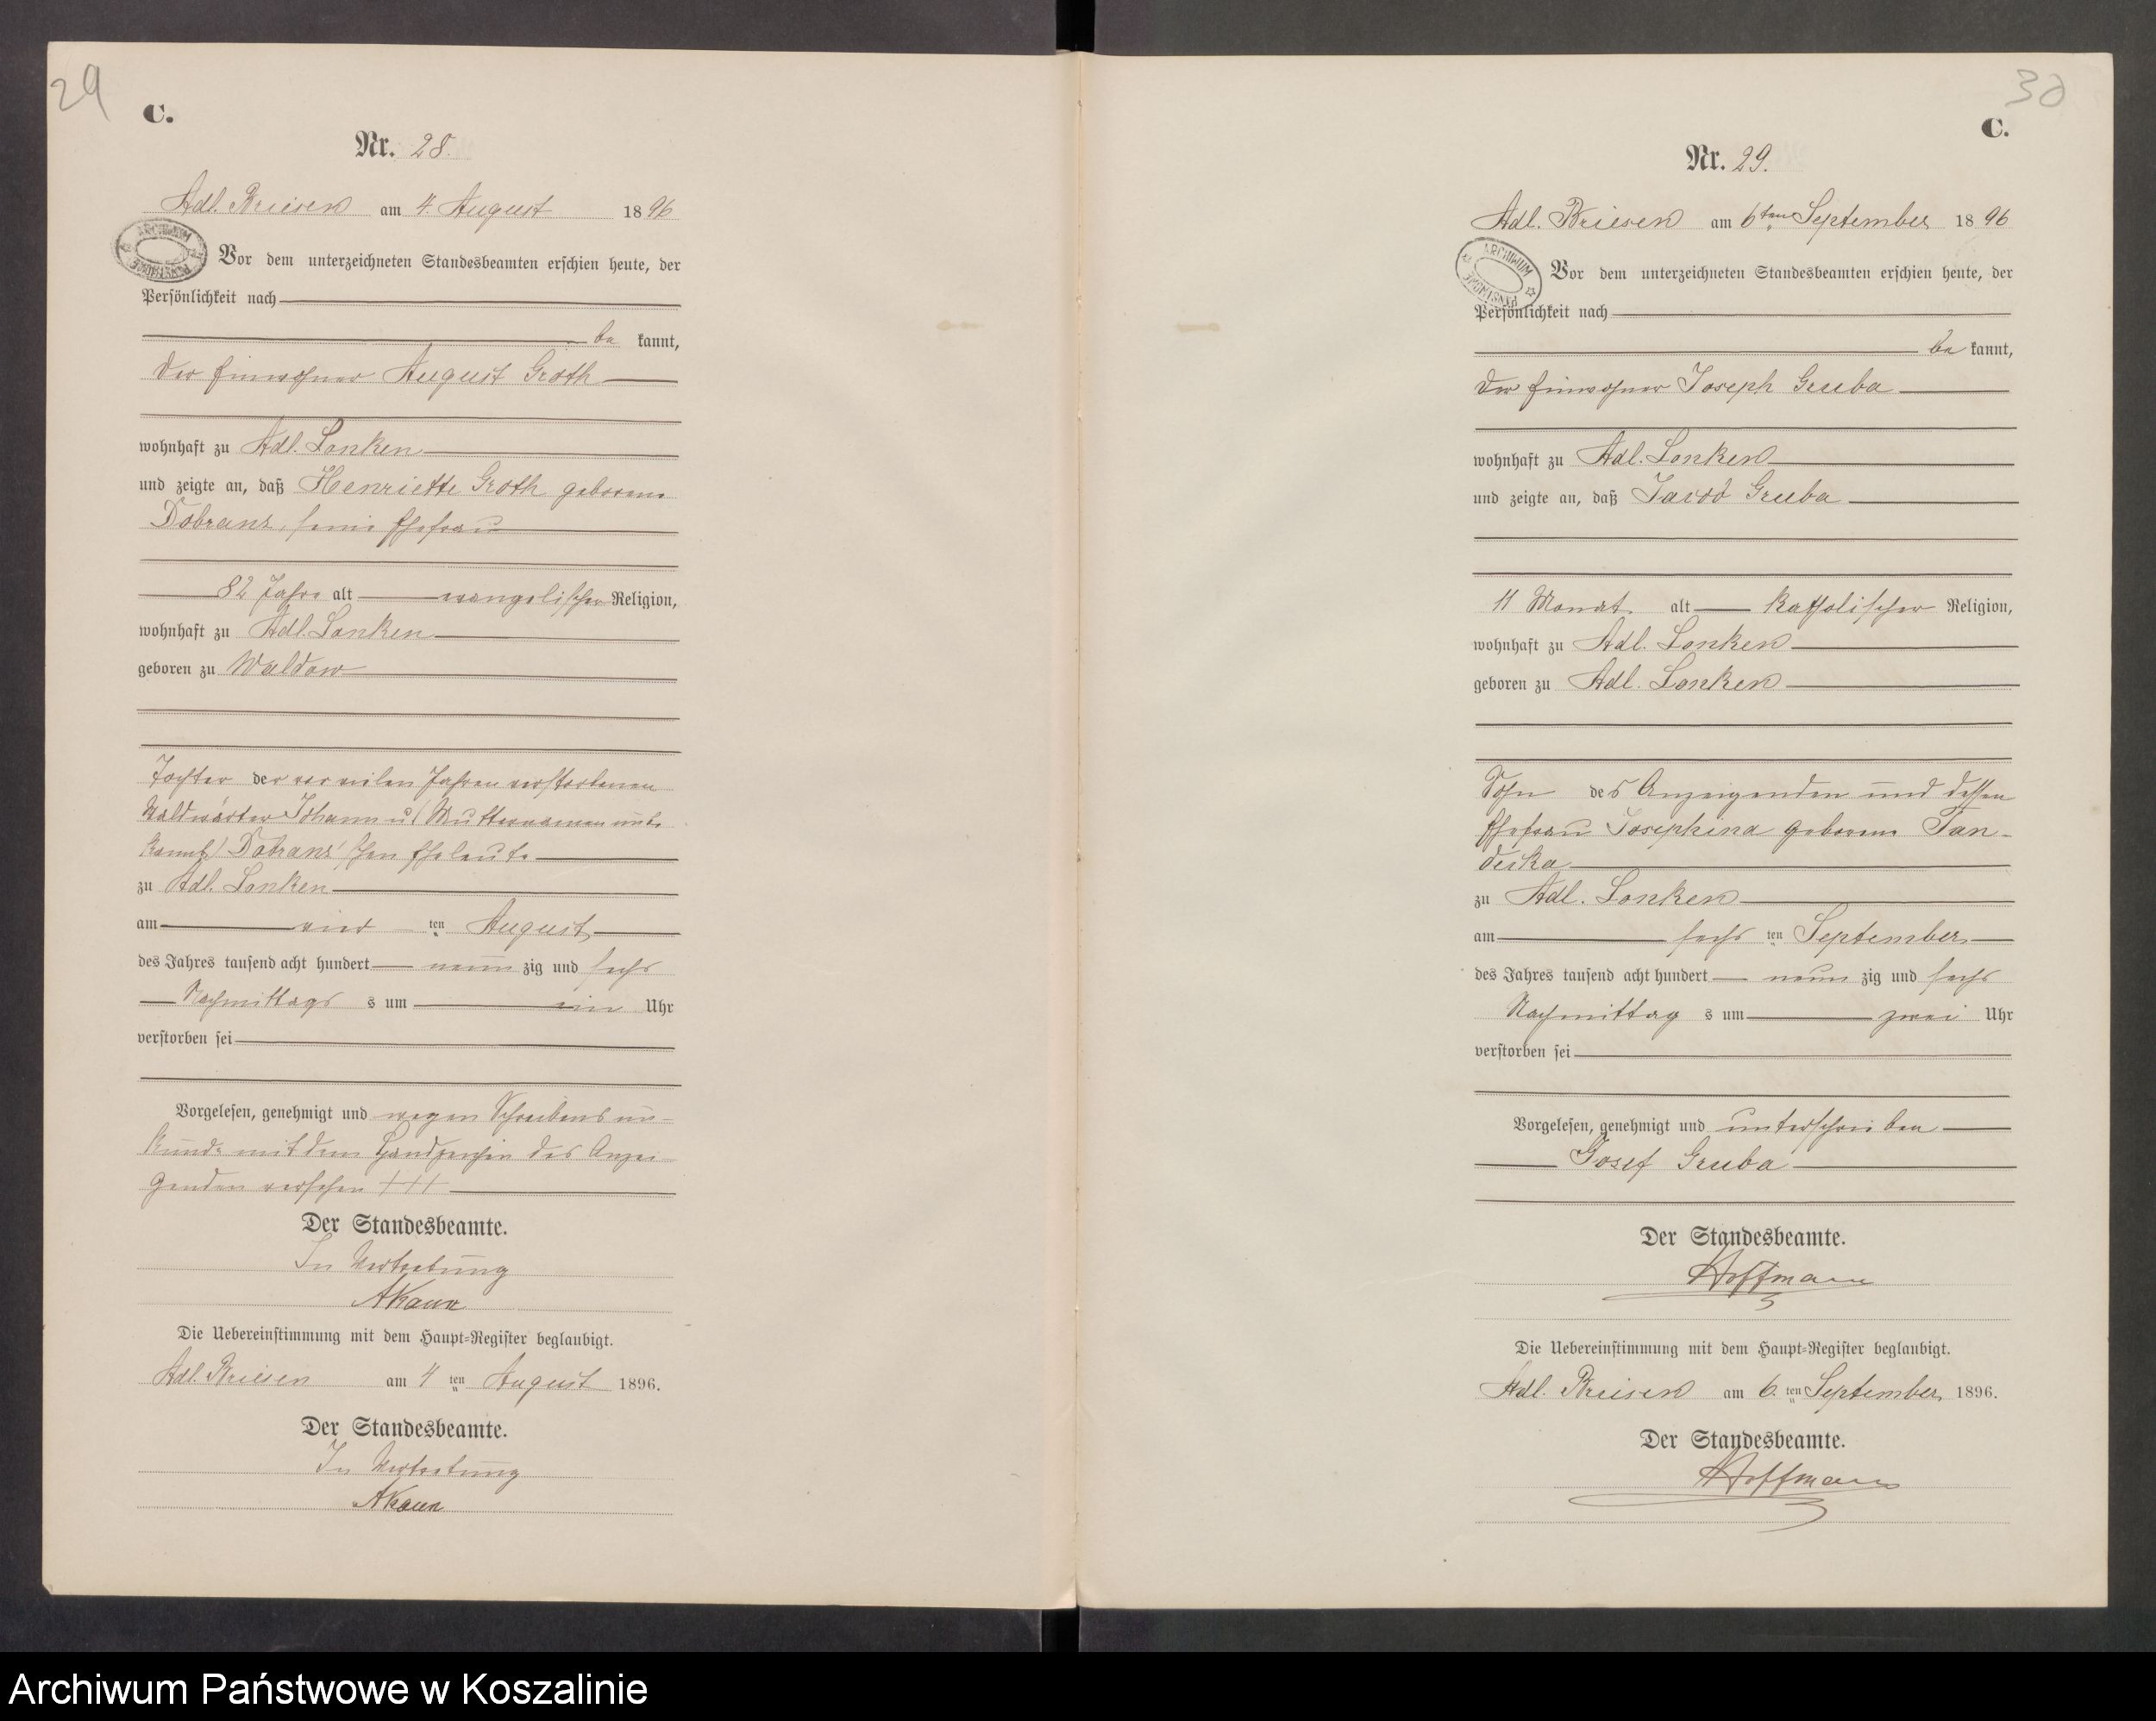 29
C.
Nr. 28.
Adl. Briesen am 4. August 1896
ARCHIWUM PAŃSTWOWE
Vor dem unterzeichneten Standesbeamten erschien heute, der
Persönlichkeit nach
be kannt,
der Einwohner August Groth
wohnhaft zu Adl. Lonken
und zeigte an, daß Henriette Groth geborene
Dobranz, seine Ehefrau
82 Jahre alt evangelischer Religion,
wohnhaft zu Adl. Lonken
geboren zu Waldow
Tochter der vor vielen Jahren verstorbenen
Waldwärter Johann u (Muttername unbe
kannt) Dobranz'schen Eheleute
zu Adl. Lonken
am vier ten August
des Jahres tausend acht hundert neun zig und sechs
Nachmittags s um ein Uhr
verstorben sei
Vorgelesen, genehmigt und wegen Schreibensun-
kunde mit dem Handzeichen des Anzei
genden versehen +++
Der Standesbeamte.
In Vertretung
Die Uebereinstimmung mit dem Haupt-Register beglaubigt.
Adl. Briesen am 4 ten August 1896.
Der Standesbeamte.
In Vertretung
30
C.
Nr. 29.
Adl. Briesen am 6ten September 1896
ARCHIWUM PAŃSTWOWE
Vor dem unterzeichneten Standesbeamten erschien heute, der
Persönlichkeit nach
be kannt,
der Einwohner Joseph Gruba
wohnhaft zu Adl. Lonken
und zeigte an, daß Jacob Gruba
11 Monat alt katholischer Religion,
wohnhaft zu Adl. Lonken
geboren zu Adl. Lonken
Sohn des Anzeigenden und dessen
Ehefrau Josephina geborene Tan-
deska
zu Adl. Lonken
am sechs ten September
des Jahres tausend acht hundert neun zig und sechs
Nachmittag s um zwei Uhr
verstorben sei
Vorgelesen, genehmigt und unterschrieben
Josef Gruba
Der Standesbeamte.
Hoffmann
Die Uebereinstimmung mit dem Haupt-Register beglaubigt.
Adl. Briesen am 6. ten September 1896.
Der Standesbeamte.
Hoffmann
Archiwum Państwowe w Koszalinie